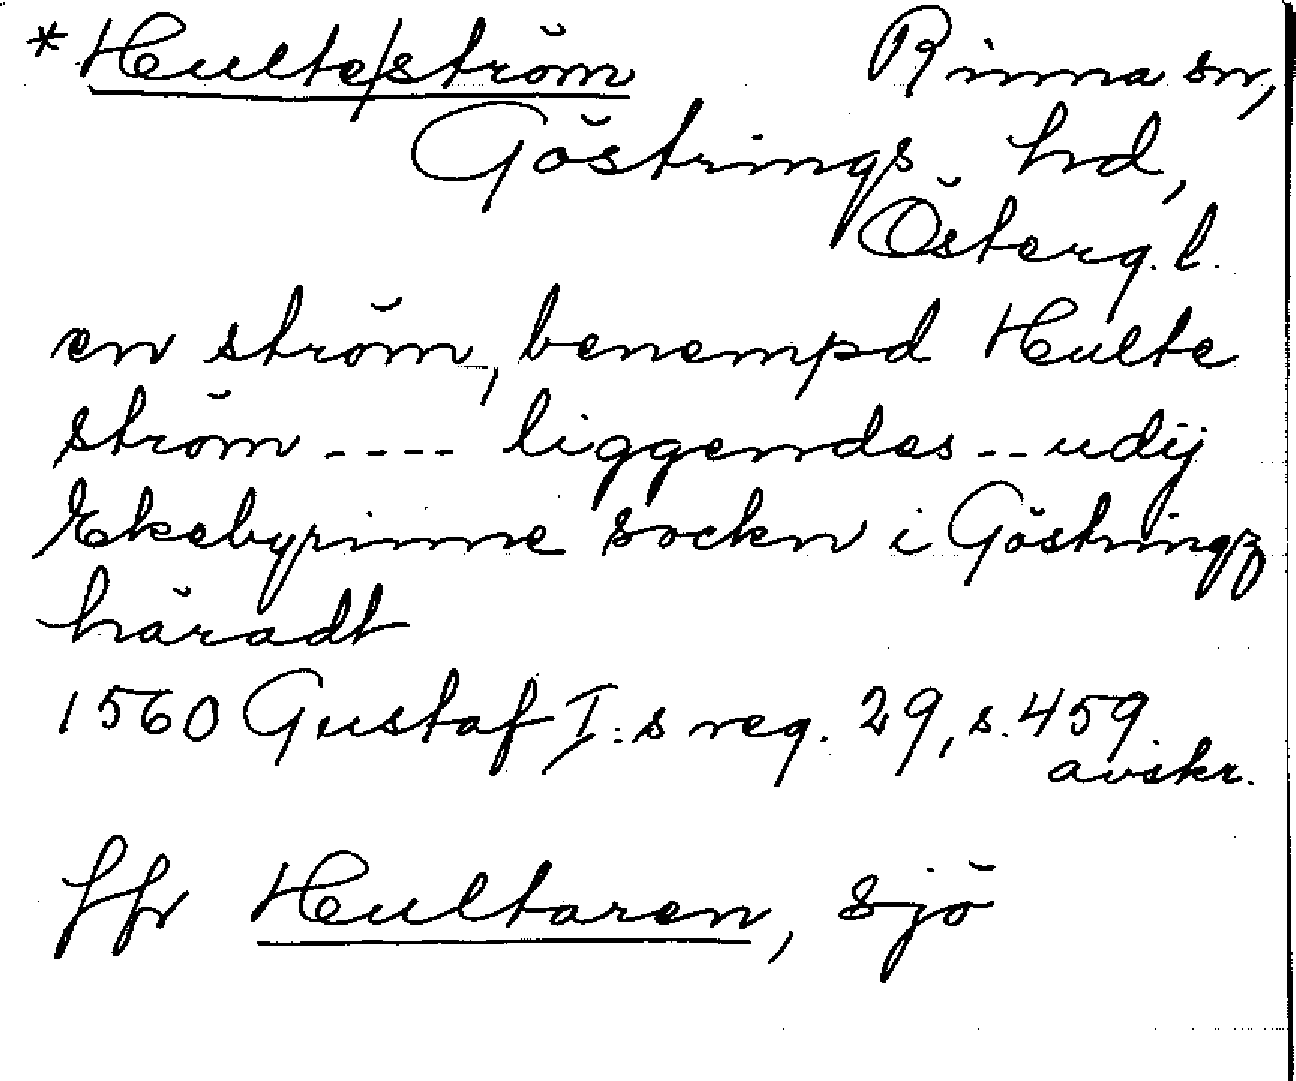 *Hulte/ström Rinna sn,
Göstrings hd,
Österg.l.
en ström, benempd Hulte
ström ---- liggendes -- udij
Ekebyrinne sockn i Göstringz
häradt
1560 Gustaf I:s reg. 29, s. 459.
avskr.
Jfr Hultaren, sjö